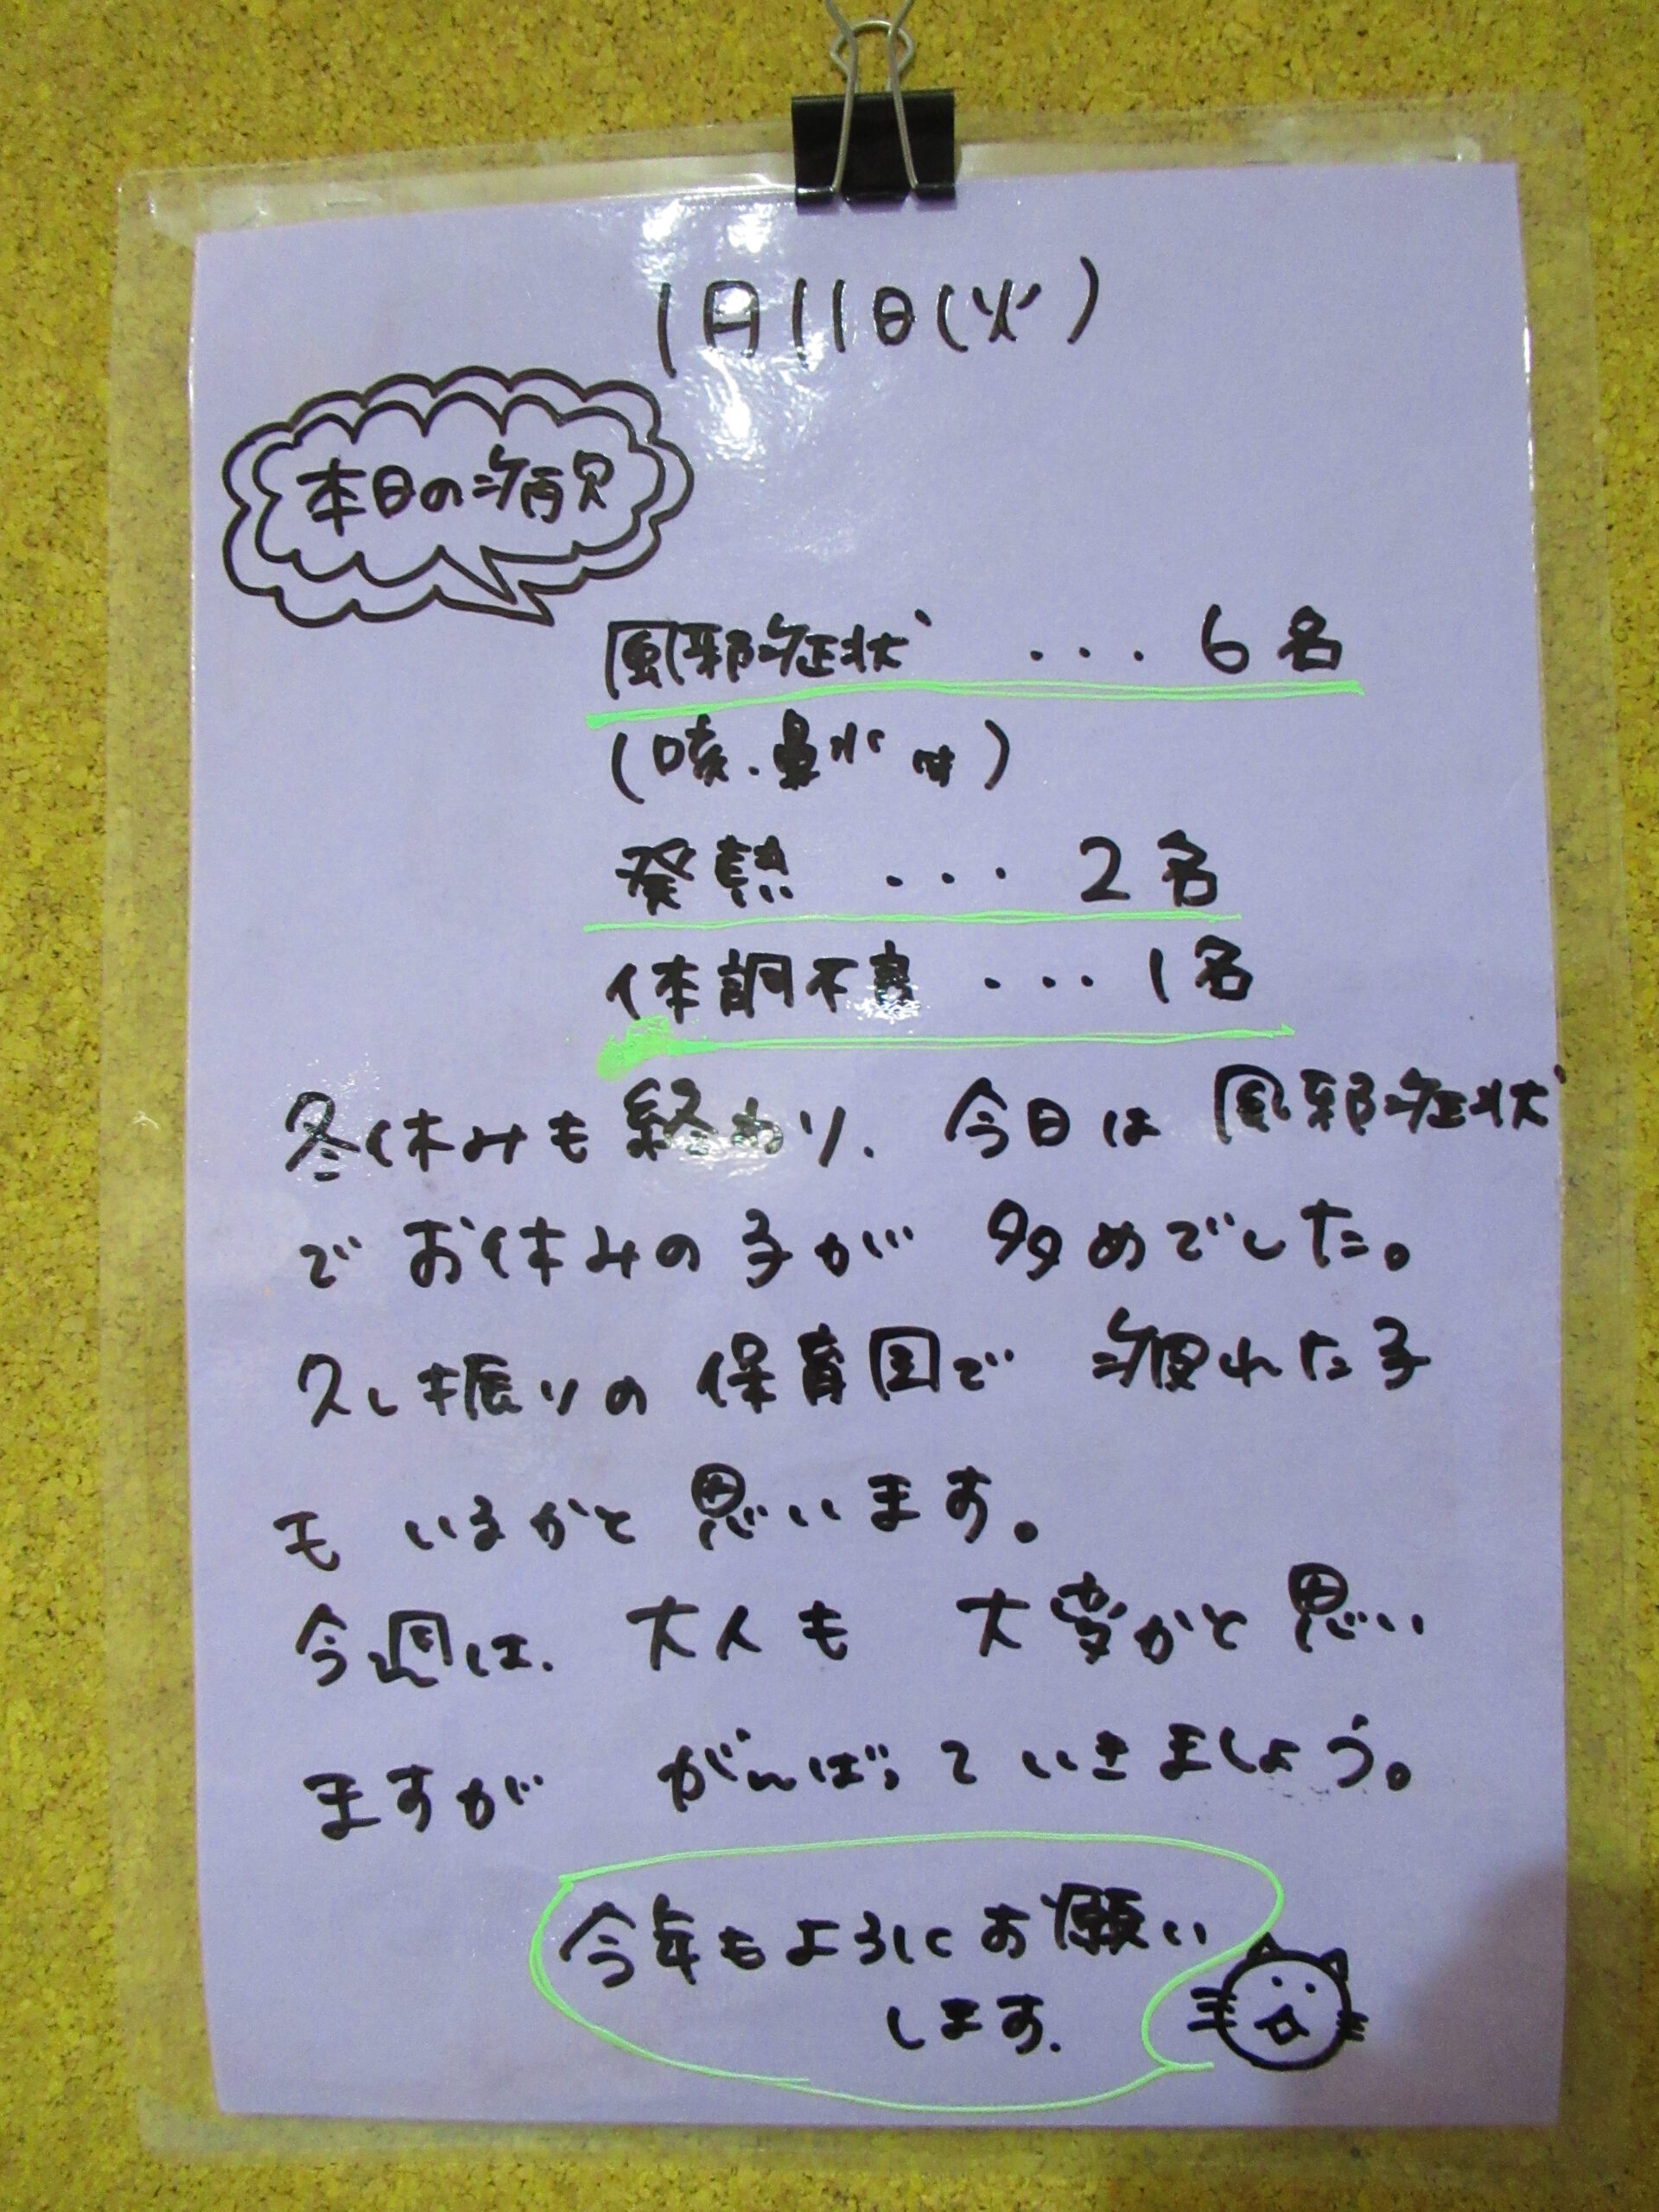 1月11日(火)
本日の病欠
風邪症状 ... 6名
(咳.鼻水 etc)
発熱 ... 2名
体調不良 ... 1名
冬休みも終わり、今日は風邪症状
でお休みの子が多めでした。
久し振りの保育園で疲れた子
もいるかと思います。
今週は、大人も大変かと思い
ますががんばっていきましょう。
今年もよろしくお願い
します.